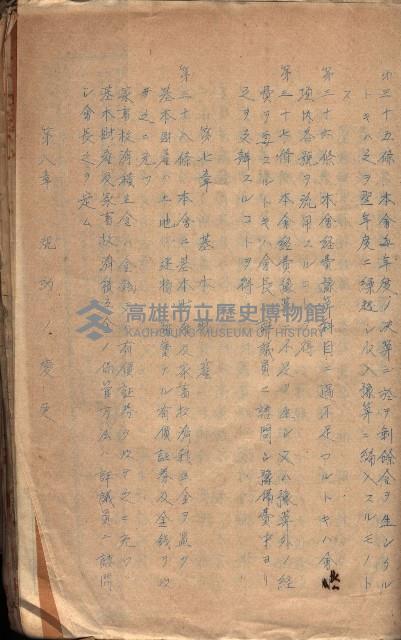 第三十五條 本會每年度ノ決算ニ於テ剰餘金ヲ生シタル
トキハ之ヲ翌年度ニ繰越シ収入豫算ニ編入スルモノト
ス
第三十六條 本會經費豫算科目ニ過不足アルトキハ會長
項
流用スルコトヲ得
第三十七條 本會經費豫算ニ不足ヲ生シ又ハ豫算外ノ經
費ヲ要スルトキハ會長ハ評議員ニ諮問シ豫備費中ヨリ
之ヲ支辨スルコトヲ得
第七章 基本財産
第三十八條 本會ニ基本財産及家畜救濟積立金ヲ置ク
基本財産ハ土地、建物、ナル有價証券及金錢ヲ以
テ之ニ充ツ
家畜救濟積立金ハ金錢、有價証券ヲ以テ之ニ充ツ
基本財産及家畜救濟積立金ノ保管方法ハ評議員ニ諮問
シ會長之ヲ定ム
第八章 規則ノ變更
高雄市立歷史博物館
KAOHSIUNG MUSEUM OF HISTORY